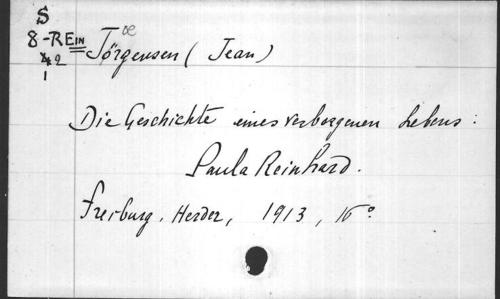 S
8-REIN
42
1
Jörgensen (Jean)
oe
Die Geschichte eines verborgenen Lebens:
Paula Reinhard.
Freiburg, Herder, 1913, 16°